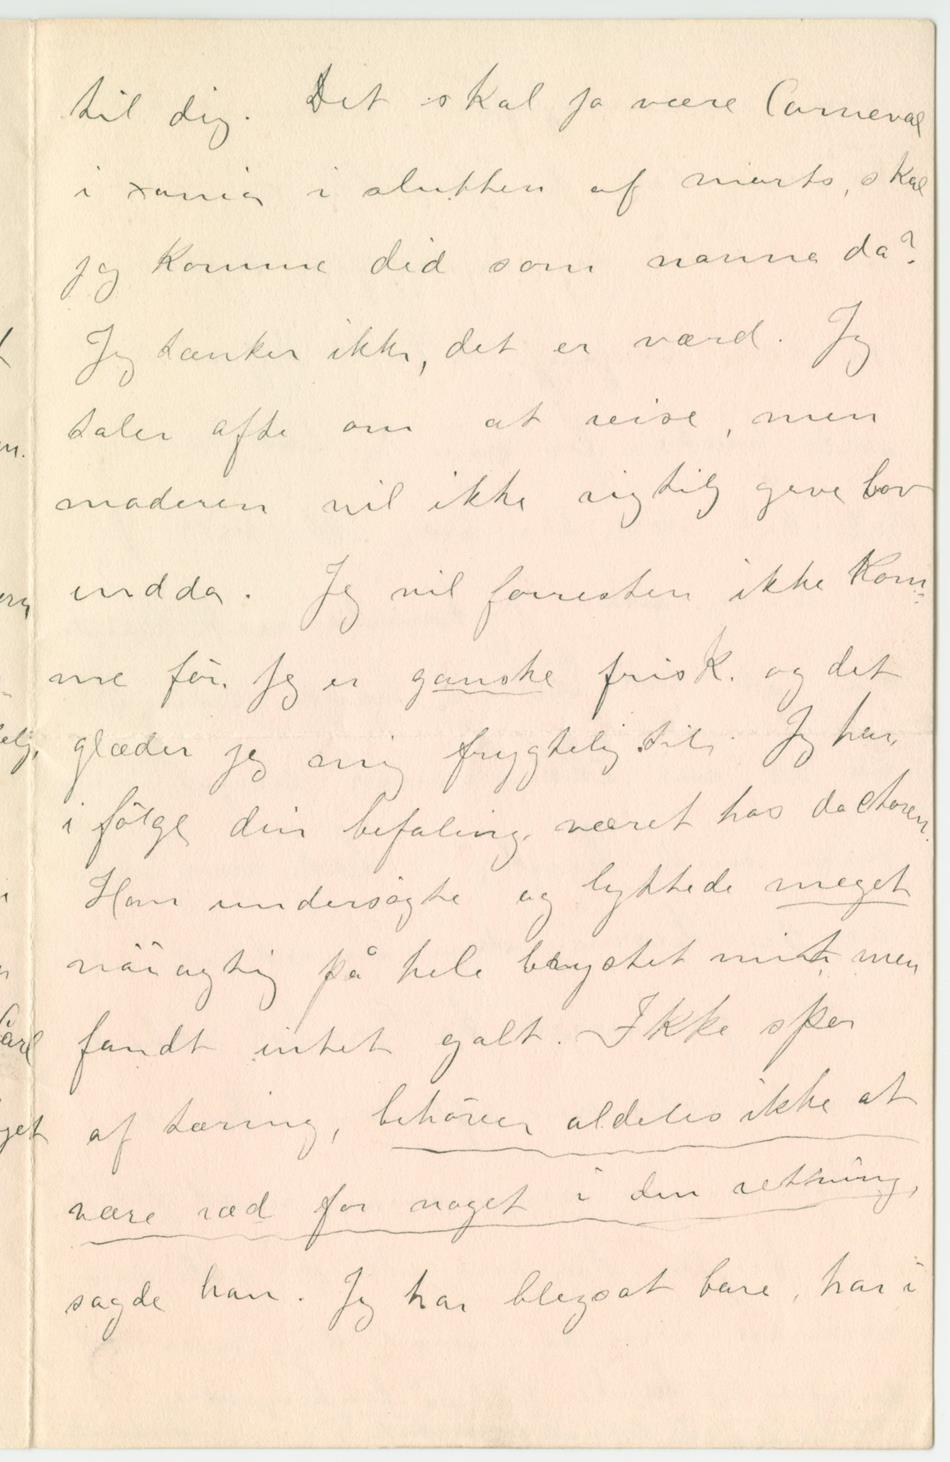 til dig. Det skal jo være Carneval
i xania i slutten af marts, skal
jeg komme did som nonne da?
Jeg tænker ikke, det er værd. Jeg
taler ofte om at reise, men
moderen vil ikke rigtig gave lov
endda. Jeg vil forresten ikke kom-
me før jeg er ganske frisk. og det
glæder jeg mig frygtelig til. Jeg har,
i følge din befaling, været hos doctoren.
Han undersøgte og lyttede meget
nöiagtig på hele brystet mit, men
fandt intet galt. Ikke spor
af tæring, behøver aldeles ikke at
være ræd for noget i den retning,
sagde han. Jeg har blegsot bare, har i